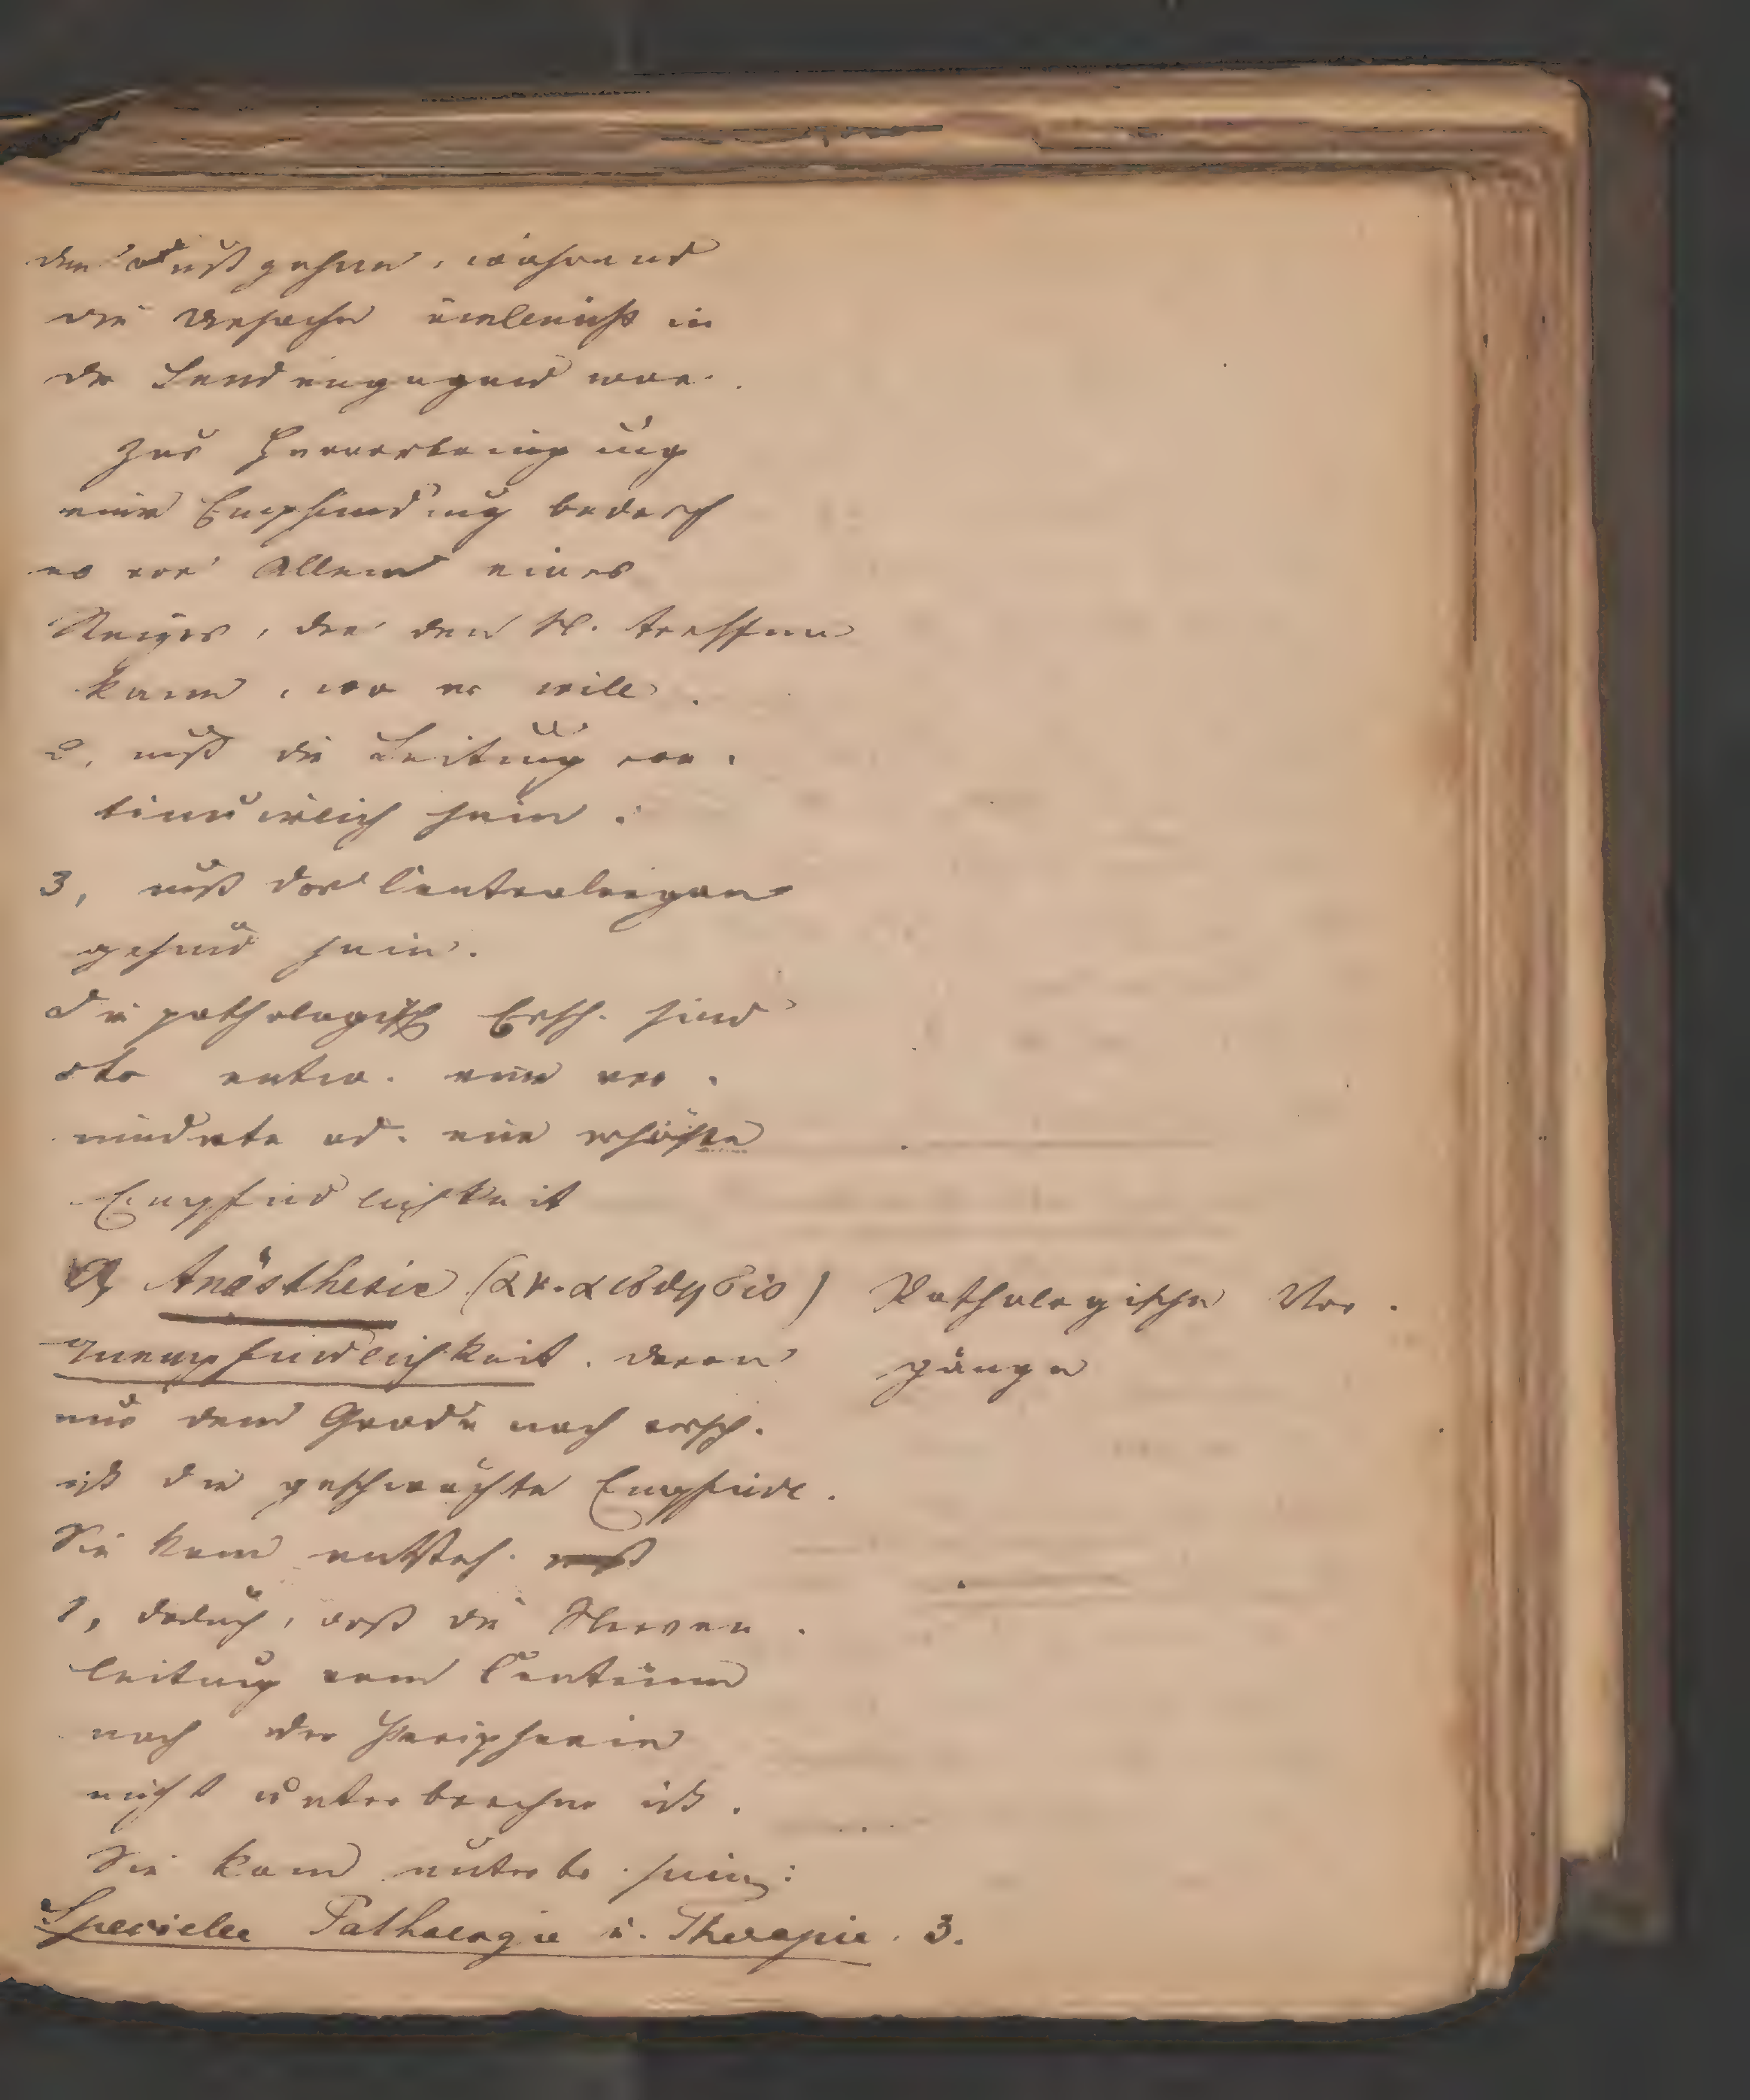 den Fuß gehen, während
die Ursache vielleicht in
der Lendengegend war.
Zur Hervorbringung
einer Empfindung bedarf
es vor Allem eines
Reizes, der den N. treffen
kann, wo er will.
2, muß die Leitung con-
tinuirlich sein.
3, muß das Centralorgan
gesund sein.
Die pathologisch Ersch. sind
entw. eine ver-
minderte od. eine erhöhte
Empfindlichkeit
a, Anästhesie (αν-αισθησις)
Unempfindlichkeit. davon
nur dem Grade nach versch.
ist die geschwächte Empfindl.
Sie kann entsteh.
1, daduch, daß die Nerven-
leitung vom Centrum
nach der Peripherie
nicht unterbrochen ist.
Sie kann unterbr. sein:
Specielle Pathologie u. Therapie. 3.
Pathologische Vor-
gänge